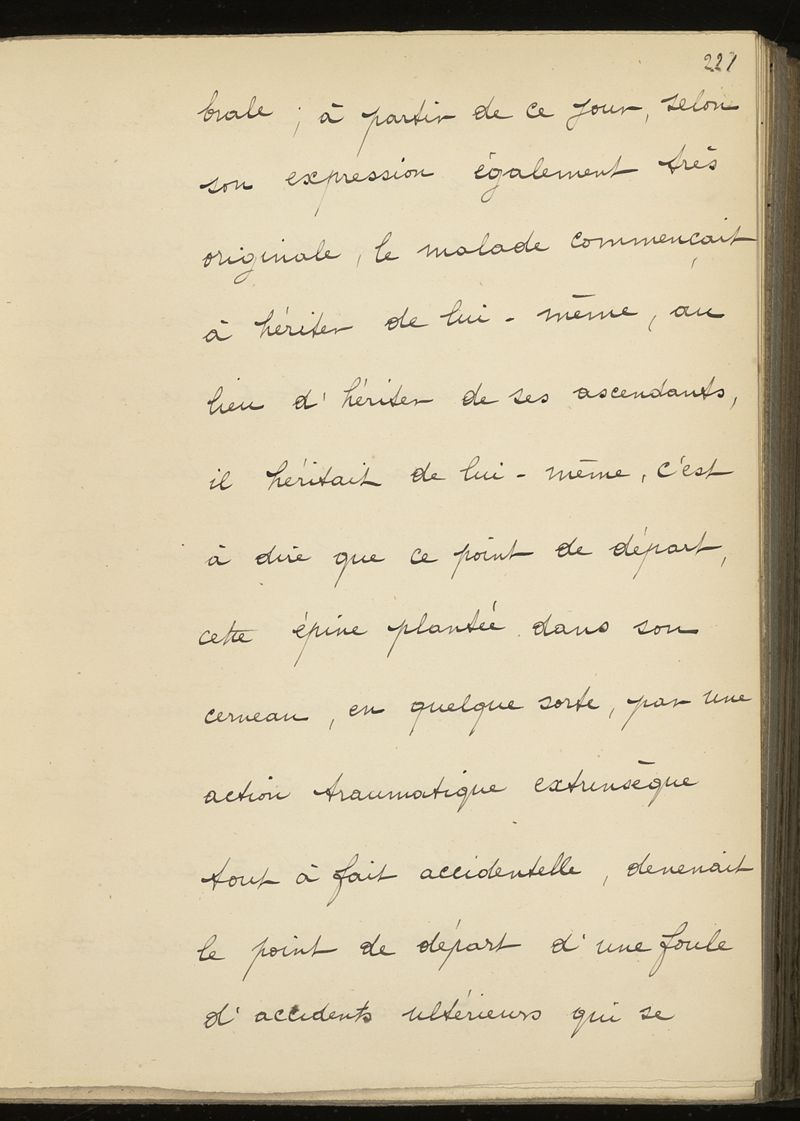 221
brale ; à partir de ce jour, selon
son expression également très
originale, le malade commençait
à hériter de lui-même, au
lieu d'hériter de ses ascendants,
il héritait de lui-même, c'est
à dire que ce point de départ,
cette épine plantée dans son
cerveau, en quelque sorte, par une
action traumatique extrinsèque
tout à fait accidentelle, devenait
le point de départ d'une foule
d'accidents ultérieurs qui se